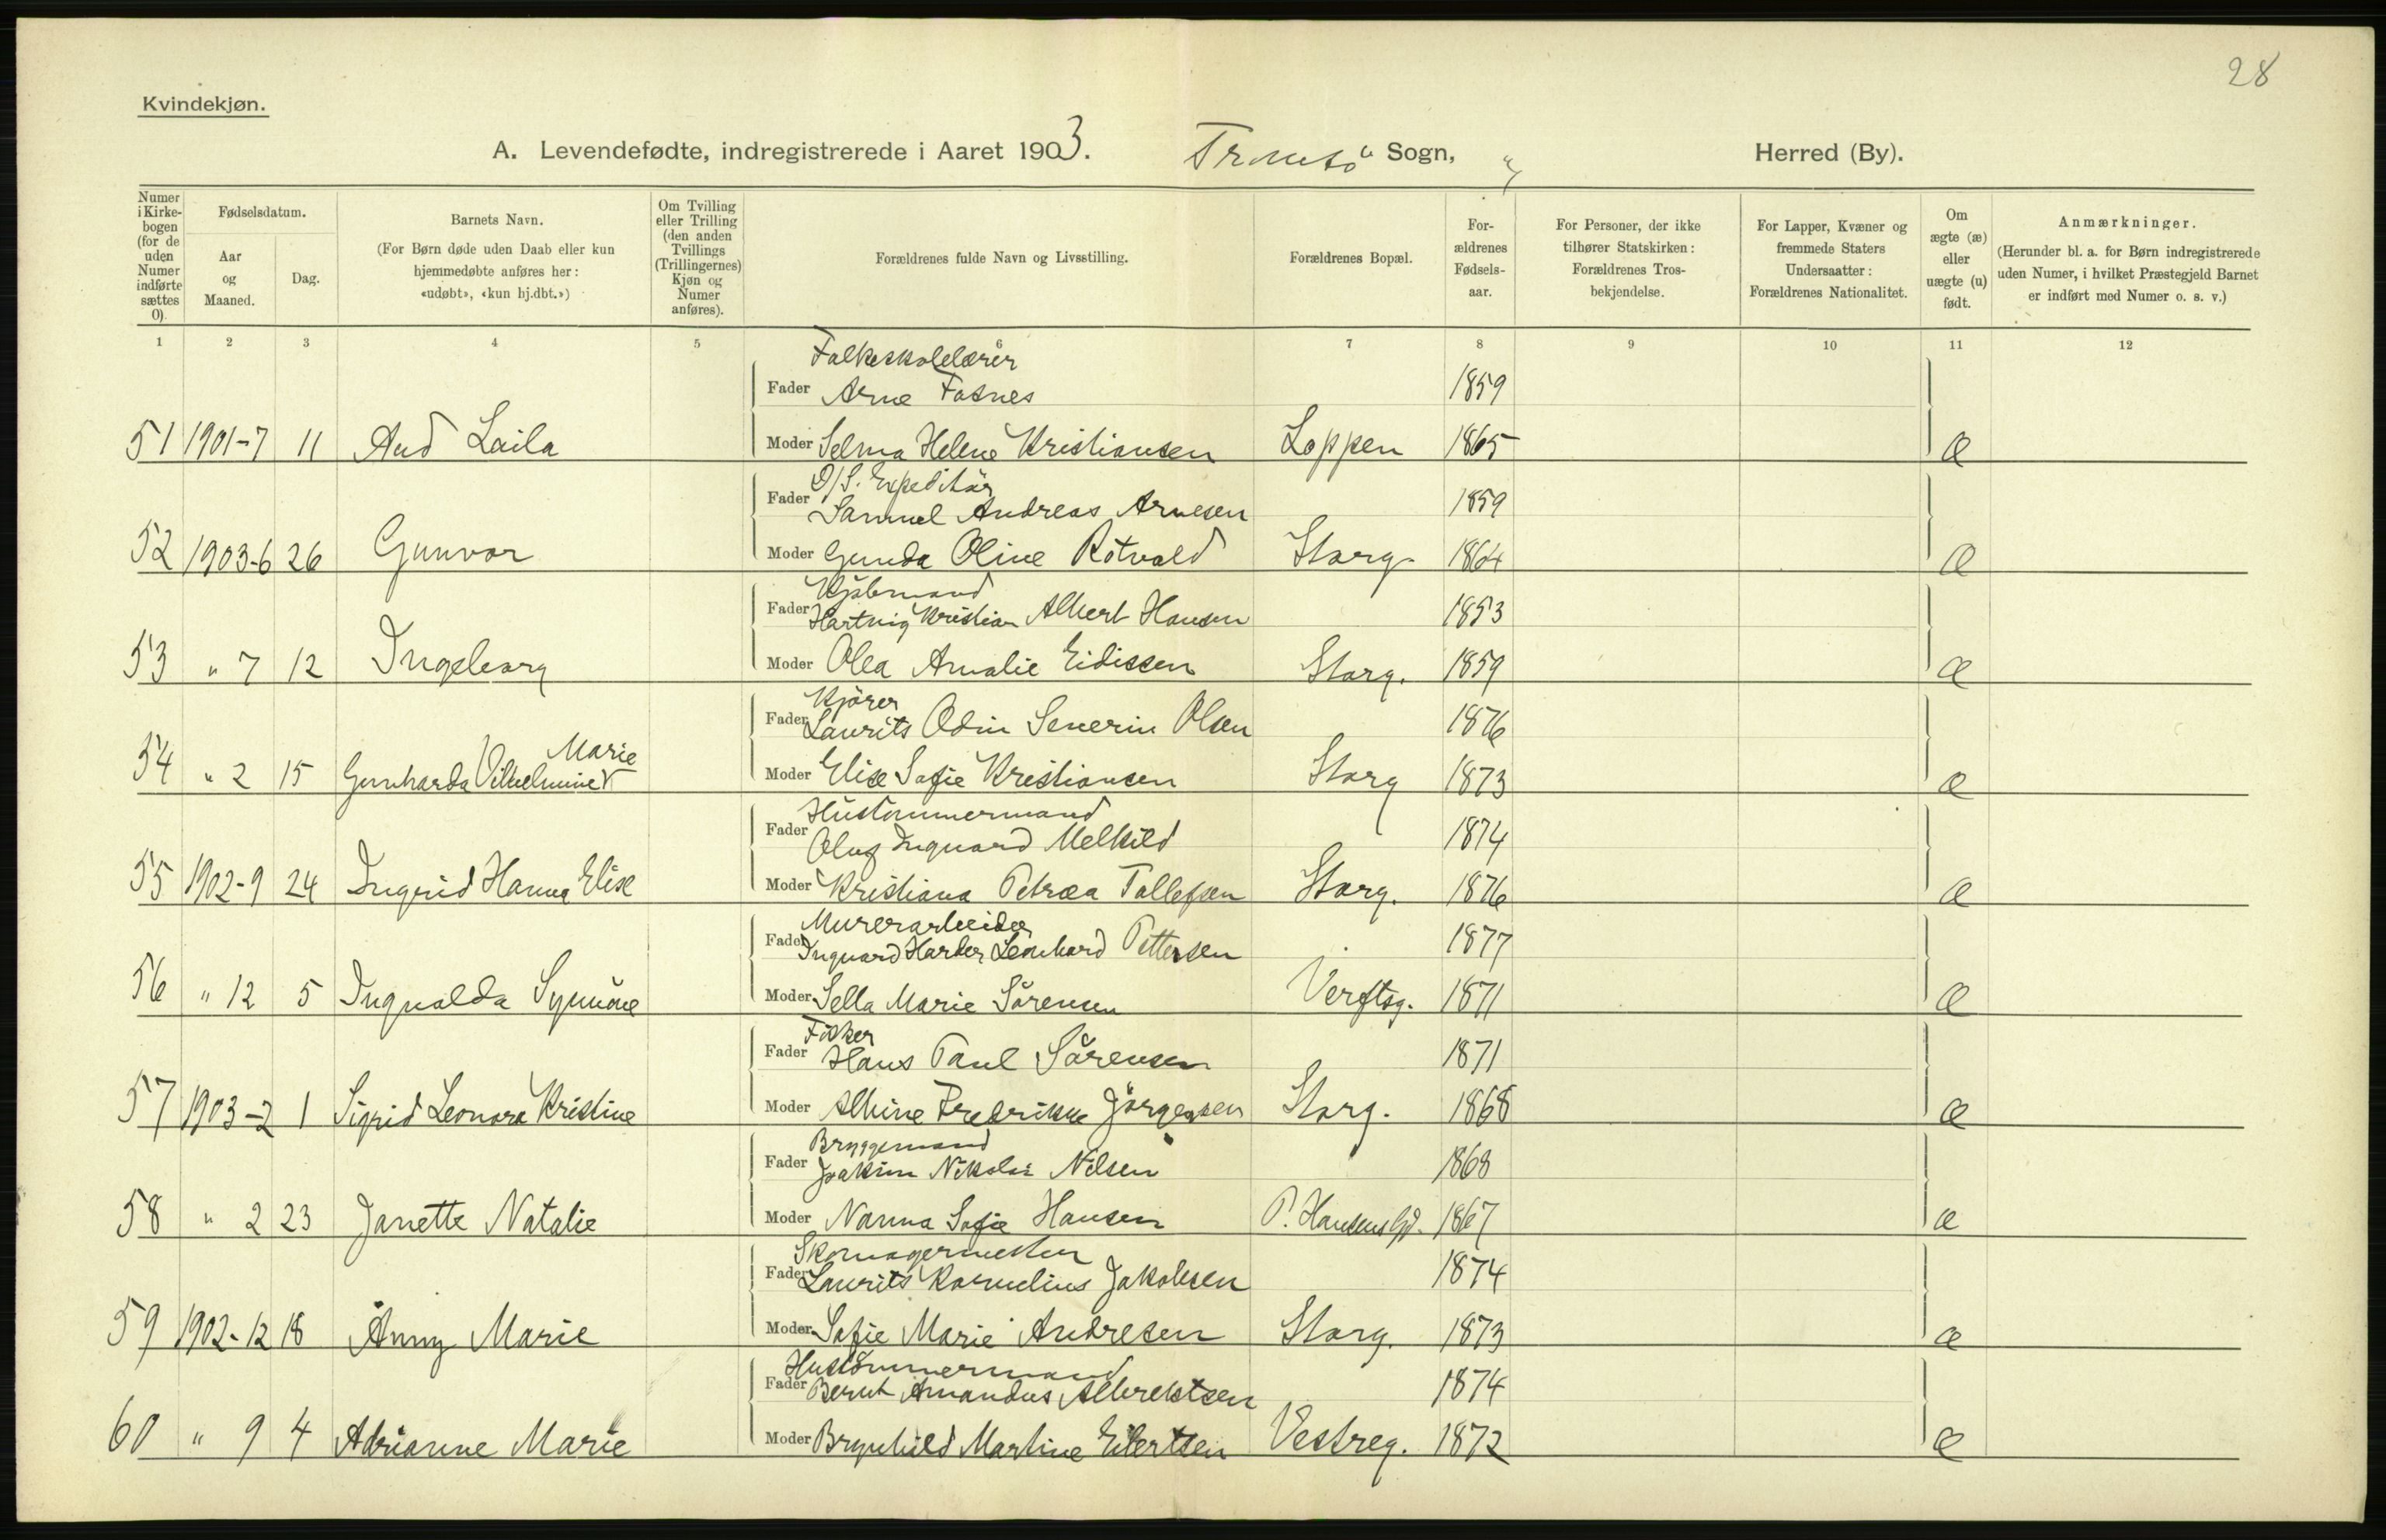 28
Kvindekjøn.
A. Levendefødte, indregistrerede i Aaret 1903. Tromsö Sogn, " Herred (By).
Numer i Kirkebogen (for de uden Numer indførte sættes 0).
Fødselsdatum.
Aar og Maaned.
Dag.
Barnets Navn.
(For Børn døde uden Daab eller kun hjemmedøbte anføres her: «udøbt», «kun hj.dbt.»)
Om Tvilling eller Trilling (den anden Tvillings (Trillingernes) Kjøn og Numer anføres).
Forældrenes fulde Navn og Livsstilling.
Forældrenes Bopæl.
Forældrenes Fødselsaar.
For Personer, der ikke tilhører Statskirken: Forældrenes Trosbekjendelse.
For Lapper, Kvæner og fremmede Staters Undersaatter: Forældrenes Nationalitet.
Om ægte (æ) eller uægte (u) født.
Anmærkninger.
(Herunder bl. a. for Børn indregistrerede uden Numer, i hvilket Præstegjeld Barnet er indført med Numer o. s. v.)
1 2 3 4 5 6 7 8 9 10 11 12
Folkeskolelærer
Fader Arne Fosnes 1859
51 1901-7 11 Aud Laila Moder Selma Helene Kristiansen Loppen 1865 æ
D/S. Expeditör
Fader Samuel Andreas Arnesen 1859
52 1903-6 26 Gunvor Moder Gunda Oline Rotvald Storg. 1864 æ
Kjöbmand
Fader Hartvig Kristian Albert Hansen 1853
53 " 7 12 Ingeborg Moder Olea Amalie Eidissen Storg. 1859 æ
Kjörer
Fader Laurits Odin Severin Olsen 1876
Marie
54 " 2 15 Gunharda Vilhelmine Moder Elise Sofie Kristiansen Storg 1873 æ
Hustömmermand
Fader Oluf Ingvard Melkild 1874
55 1902-9 24 Ingrid Hanna Elise Moder Kristiana Petræa Tollefsen Storg. 1876 æ
Murerarbeider
Fader Ingvard Harder Leonhard Pettersen 1877
56 " 12 5 Ingvalda Synnöve Moder Sella Marie Sörensen Verftsg. 1871 æ
Fisker
Fader Hans Paul Sörensen 1871
57 1903-2 1 Sigrid Leonora Kristine Moder Albine Fredrikke Jörgensen Storg. 1868 æ
Bryggemand
Fader Joakim Nikolai Nilsen 1868
58 " 2 23 Janette Natalie Moder Nanna Sofie Hansen P. Hansens Gd. 1867 æ
Skomagermester
Fader Laurits Kornelius Jakobsen 1874
59 1902-12 18 Anny Marie Moder Sofie Marie Andresen Storg. 1873 æ
Hustömmermand
Fader Bernt Amandus Albrektsen 1874
60 " 9 4 Adrianne Marie Moder Brynhild Martine Eilertsen Vestreg. 1872 æ